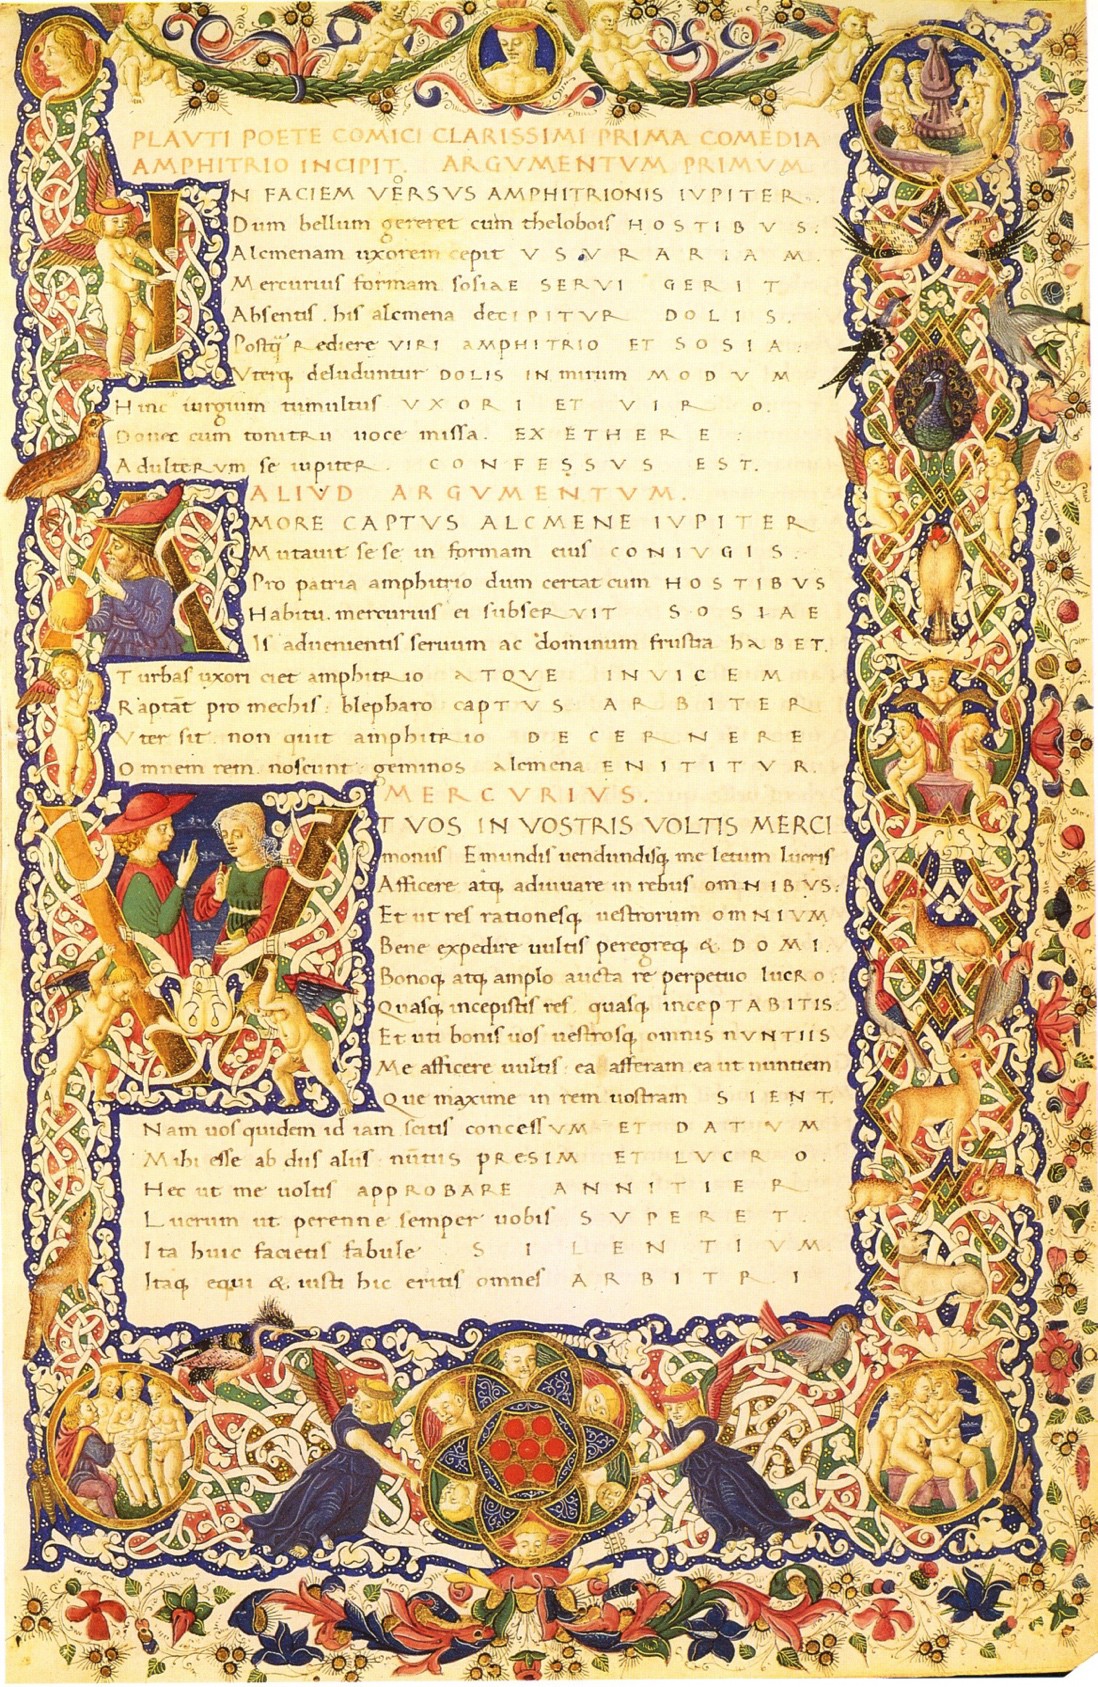 PLAVTI POETE COMICI CLARISSIMI PRIMA COMEDIA
AMPHITRIO INCIPIT. ARGVMENTVM PRIMVM
IN FACIEM VERSVS AMPHITRIONIS IVPITER.
Dum bellum gereret cum thelobois HOSTIBVS:
Alcmenam uxorem cepit VSVRARIAM.
Mercurius formam sosiAE SERVI GERIT
Absentis. his alcmena decIPITVR DOLIS.
Postq̃ Rediere VIRI AMPHITRIO ET SOSIA:
Vterq; deluduntur DOLIS IN mirum MODVM
Hinc iurgium tumultus VXORI ET VIRO.
Donec cum tonitru uoce missa. EX ETHERE:
AdulteRVm se iupiteR. CONFESSVS EST.
ALIVD ARGVMENTVM.
AMORE CAPTVS ALCMENE IVPITER
Mutauit sese in formam eius CONIVGIS:
Pro patria amphitrio dum certat cum HOSTIBVS
Habitu. mercurius ei subseRVIT SOSIAE
Is aduenientis seruum ac dominum frustra hABET.
Turbas uxori ciet amphitRio ATQVE INVICEM
Raptãt pro mechis: blepharo capTVS ARBITER
Vter sit. non quit amphitRio DECERNERE
Omnem rem noscunt geminos alcmena ENITITVR.
MERCVRIVS.
VT VOS IN VOSTRIS VOLTIS MERCI
monus Emundis uendundisq. me letum lucris
Afficere atq. adiuuare in rebus omNIBVS:
Et ut res rationesq. uestrorum omNIVM
Bene expedire uultis peregreq. & DOMI.
Bonoq. atq. amplo aucta re perpetuo lucro.
Quasq. incepistis res. quasq. incepTABITIS.
Et uti bonis uos uestrosq. omnis nVNTIIS
Me afficere uultis: ea afferam. ea ut nuntiem
Que maxume in rem uostram SIENT.
Nam uos quidem id iam scitis concessVM ET DATVM
Mihi esse ab diis aliis nũtiis PRESIM ET LVCRO.
Hec ut me uoltis appROBARE ANNITIER
Lucrum ut perenne semper uobis SVPERET.
Ita huic facietis fabule SILENTIVM.
Itaq. equi & iusti hic eritis omnes ARBITRI